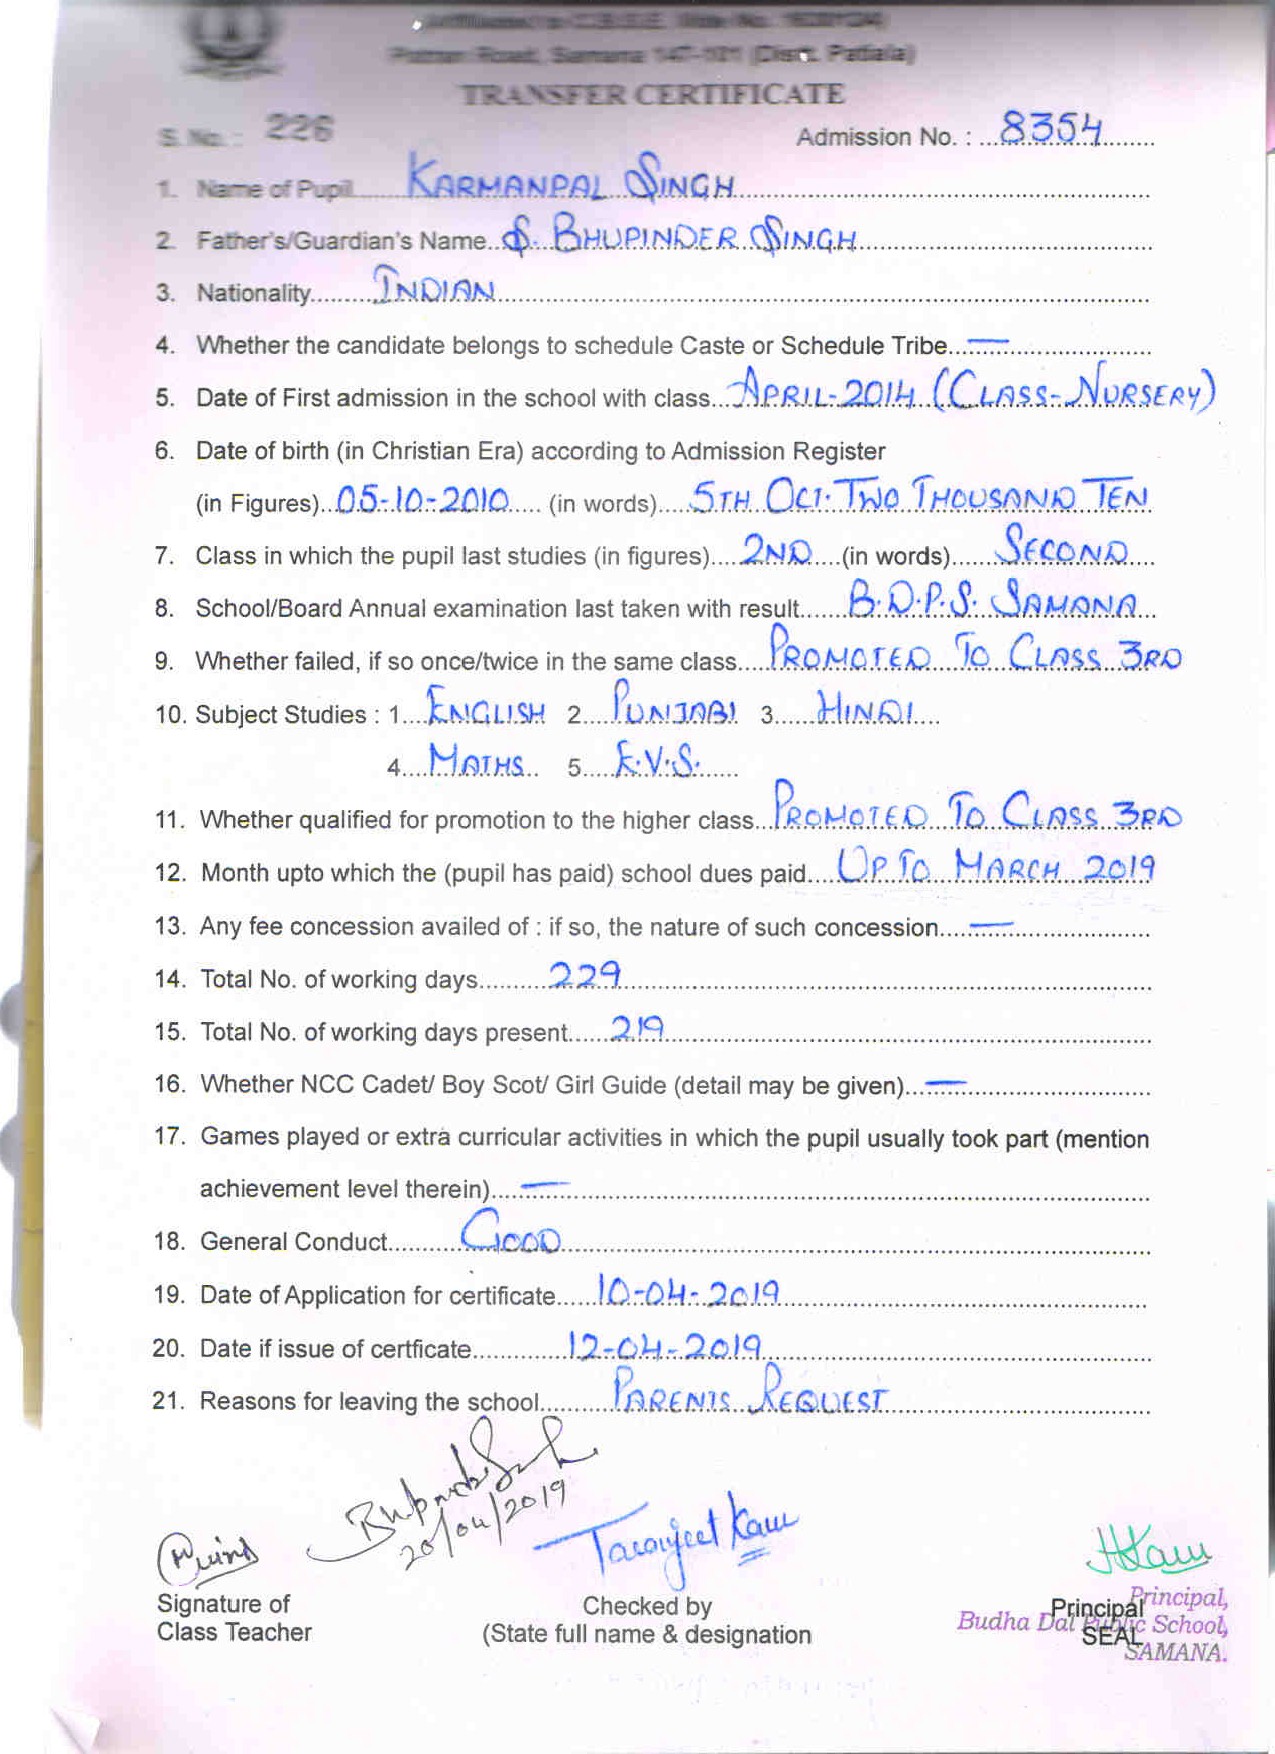 Affiliated to C.B.S.E. Vide No.
Patran Road, Samana 147-101 (Distt. Patiala)
TRANSFER CERTIFICATE
S. No. : 226 Admission No. : 8354
1. Name of Pupil KARMANPAL SINGH
2. Father's/Guardian's Name S. BHUPINDER SINGH
3. Nationality INDIAN
4. Whether the candidate belongs to schedule Caste or Schedule Tribe —
5. Date of First admission in the school with class APRIL-2014 (CLASS-NURSERY)
6. Date of birth (in Christian Era) according to Admission Register
(in Figures) 05-10-2010 (in words) 5TH OCT. TWO THOUSAND TEN
7. Class in which the pupil last studies (in figures) 2ND (in words) SECOND
8. School/Board Annual examination last taken with result B.D.P.S. SAMANA
9. Whether failed, if so once/twice in the same class PROMOTED TO CLASS 3RD
10. Subject Studies : 1 ENGLISH 2 PUNJABI 3 HINDI
4 MATHS 5 E.V.S.
11. Whether qualified for promotion to the higher class PROMOTED TO CLASS 3RD
12. Month upto which the (pupil has paid) school dues paid UP TO MARCH 2019
13. Any fee concession availed of : if so, the nature of such concession —
14. Total No. of working days 229
15. Total No. of working days present 219
16. Whether NCC Cadet/ Boy Scot/ Girl Guide (detail may be given) —
17. Games played or extra curricular activities in which the pupil usually took part (mention
achievement level therein) —
18. General Conduct GOOD
19. Date of Application for certificate 10-04-2019
20. Date if issue of certficate 12-04-2019
21. Reasons for leaving the school PARENTS REQUEST
20/04/2019
Taranjeet Kaur
Signature of
Class Teacher
Checked by
(State full name & designation
Principal
SEAL
Principal,
Budha Dal Public School,
SAMANA.